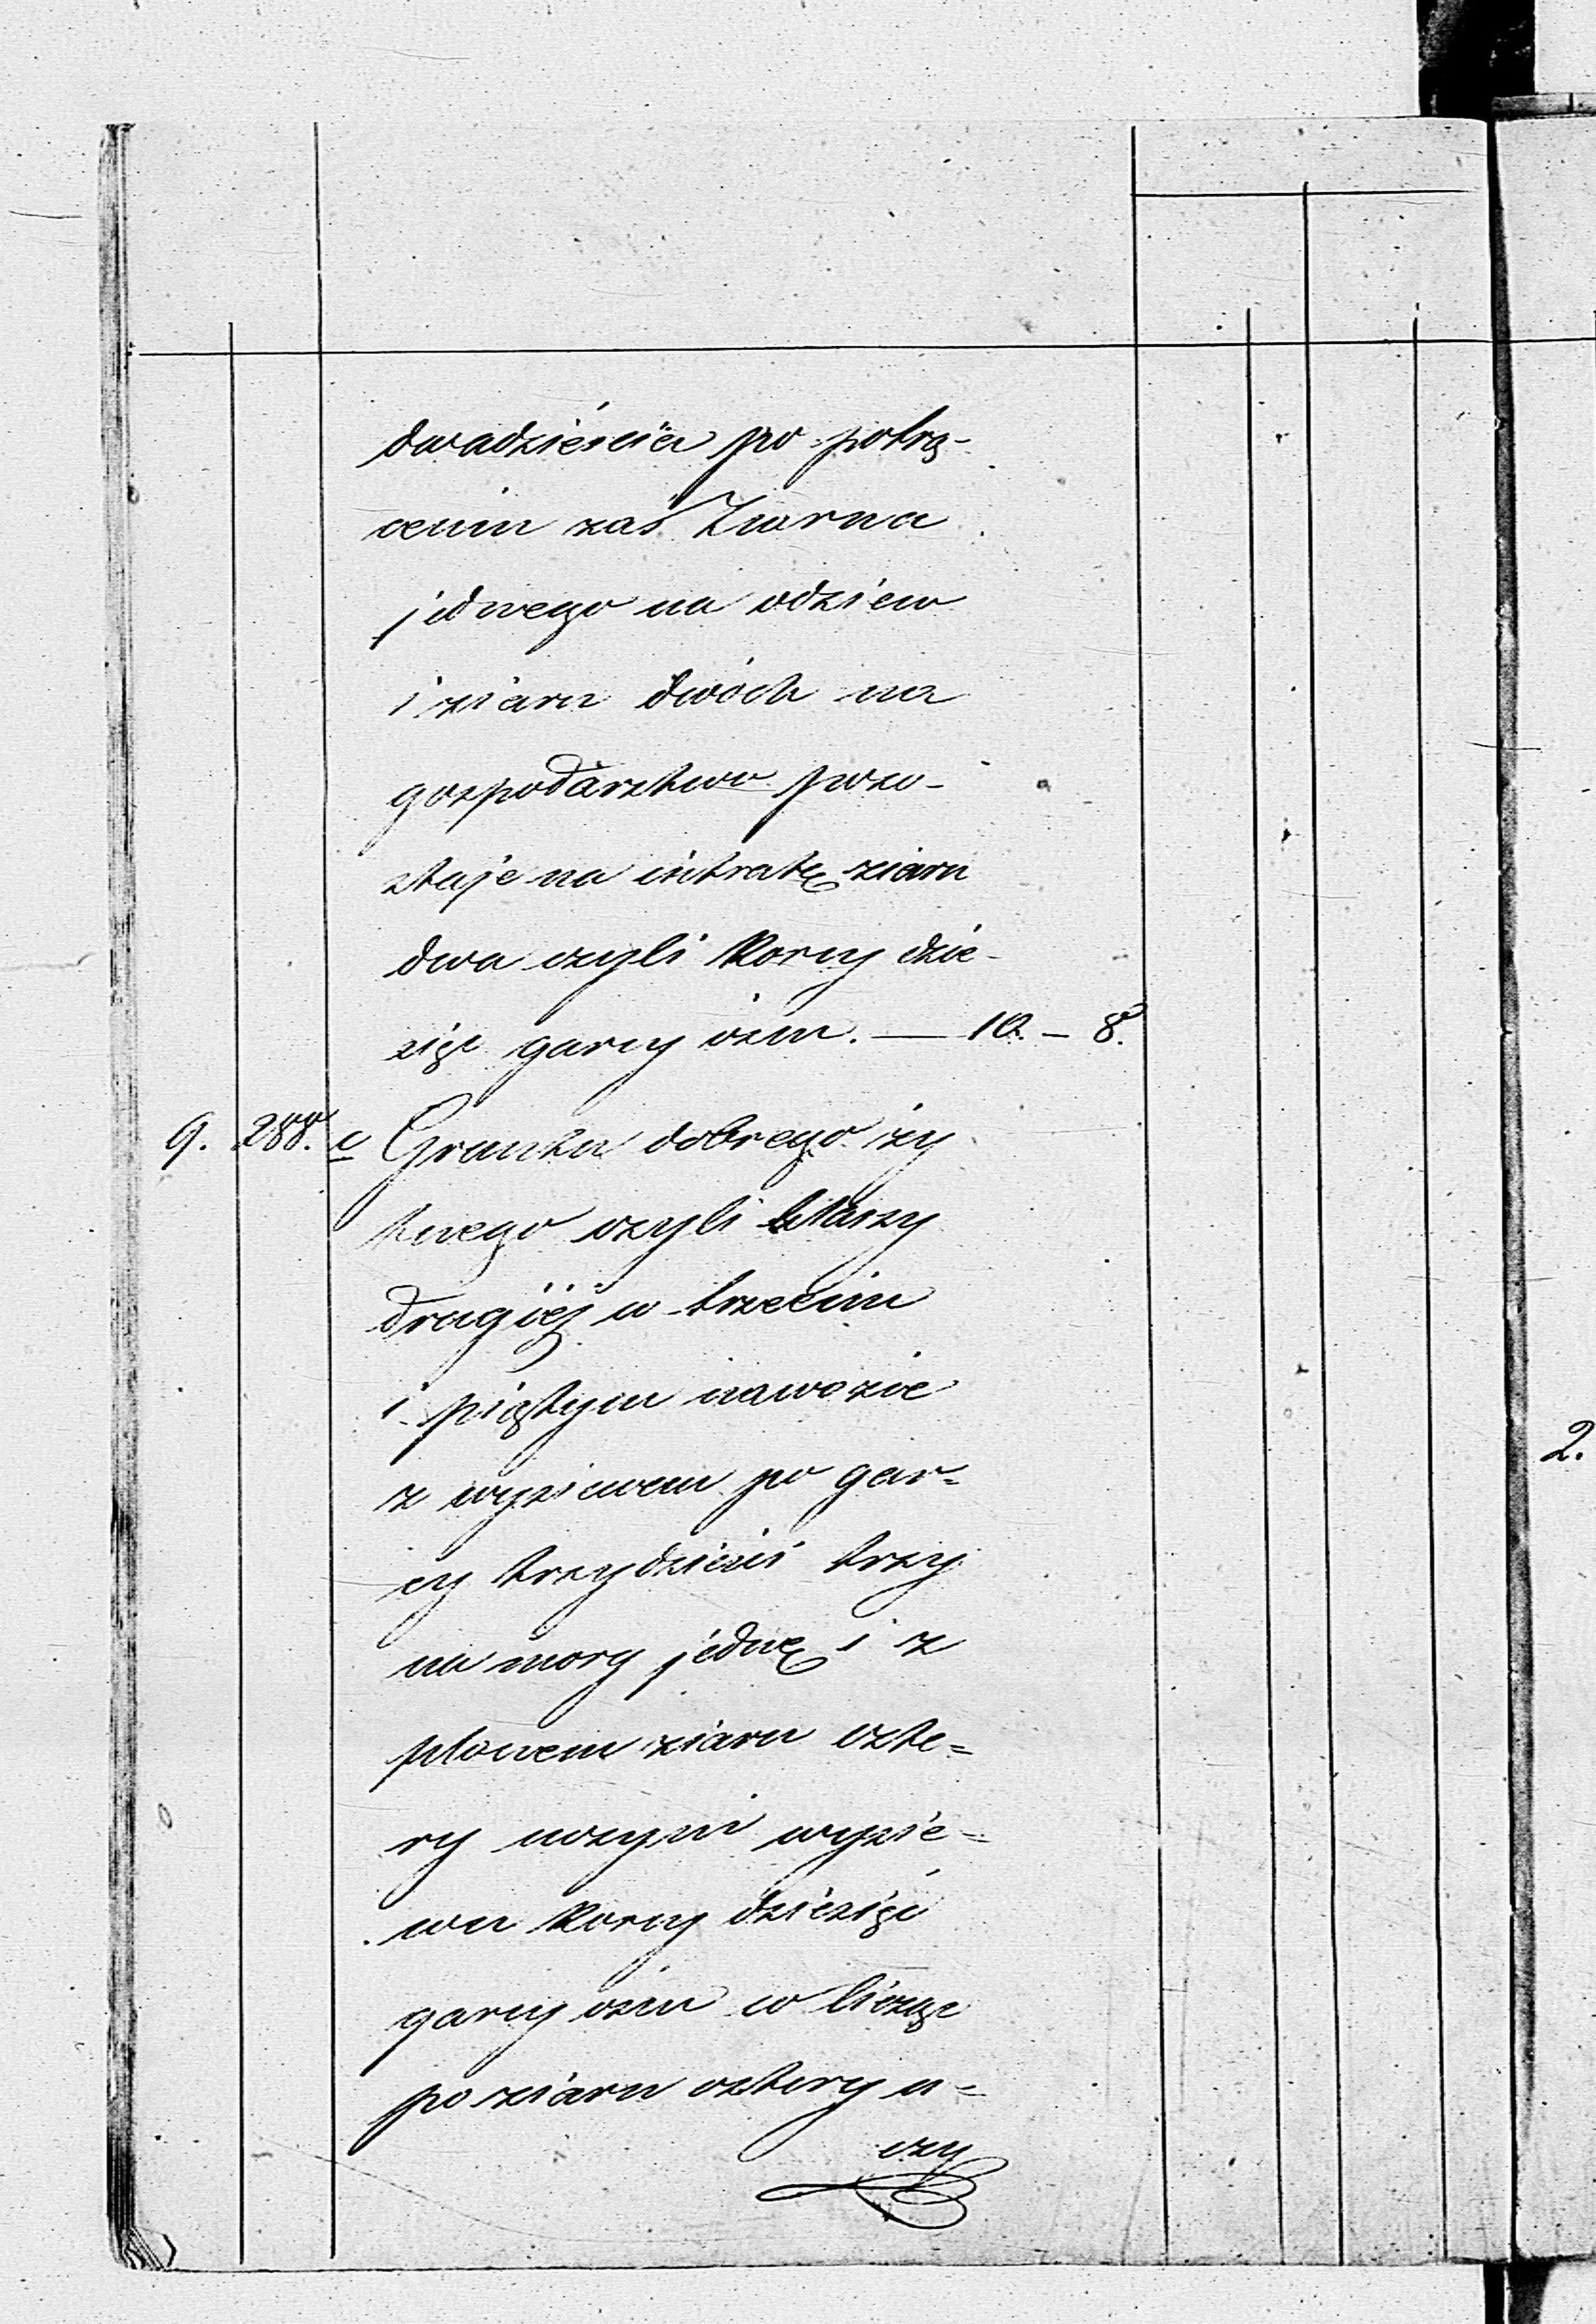 dwadzieścia po potrą-
ceniu zaś Ziarna
jednego na odsiew
i ziarn dwóch na
gospodarstwo pozo-
staje na intratę ziarn
dwa czyli Korcy dzie-
sięć garcy ośm. — 10. — 8.
9. 288. c Gruntu dobrego ży
tnego czyli klassy
drugiéj w trzecim
i piątym nawozie
z wysiewem po gar=
cy trzydzieści trzy
na morg jeden i z
plonem ziarn czte=
ry uczyni wysie=
wu Korcy dziesięć
garcy ośm co licząc
po ziarn cztery u=
czy
2.